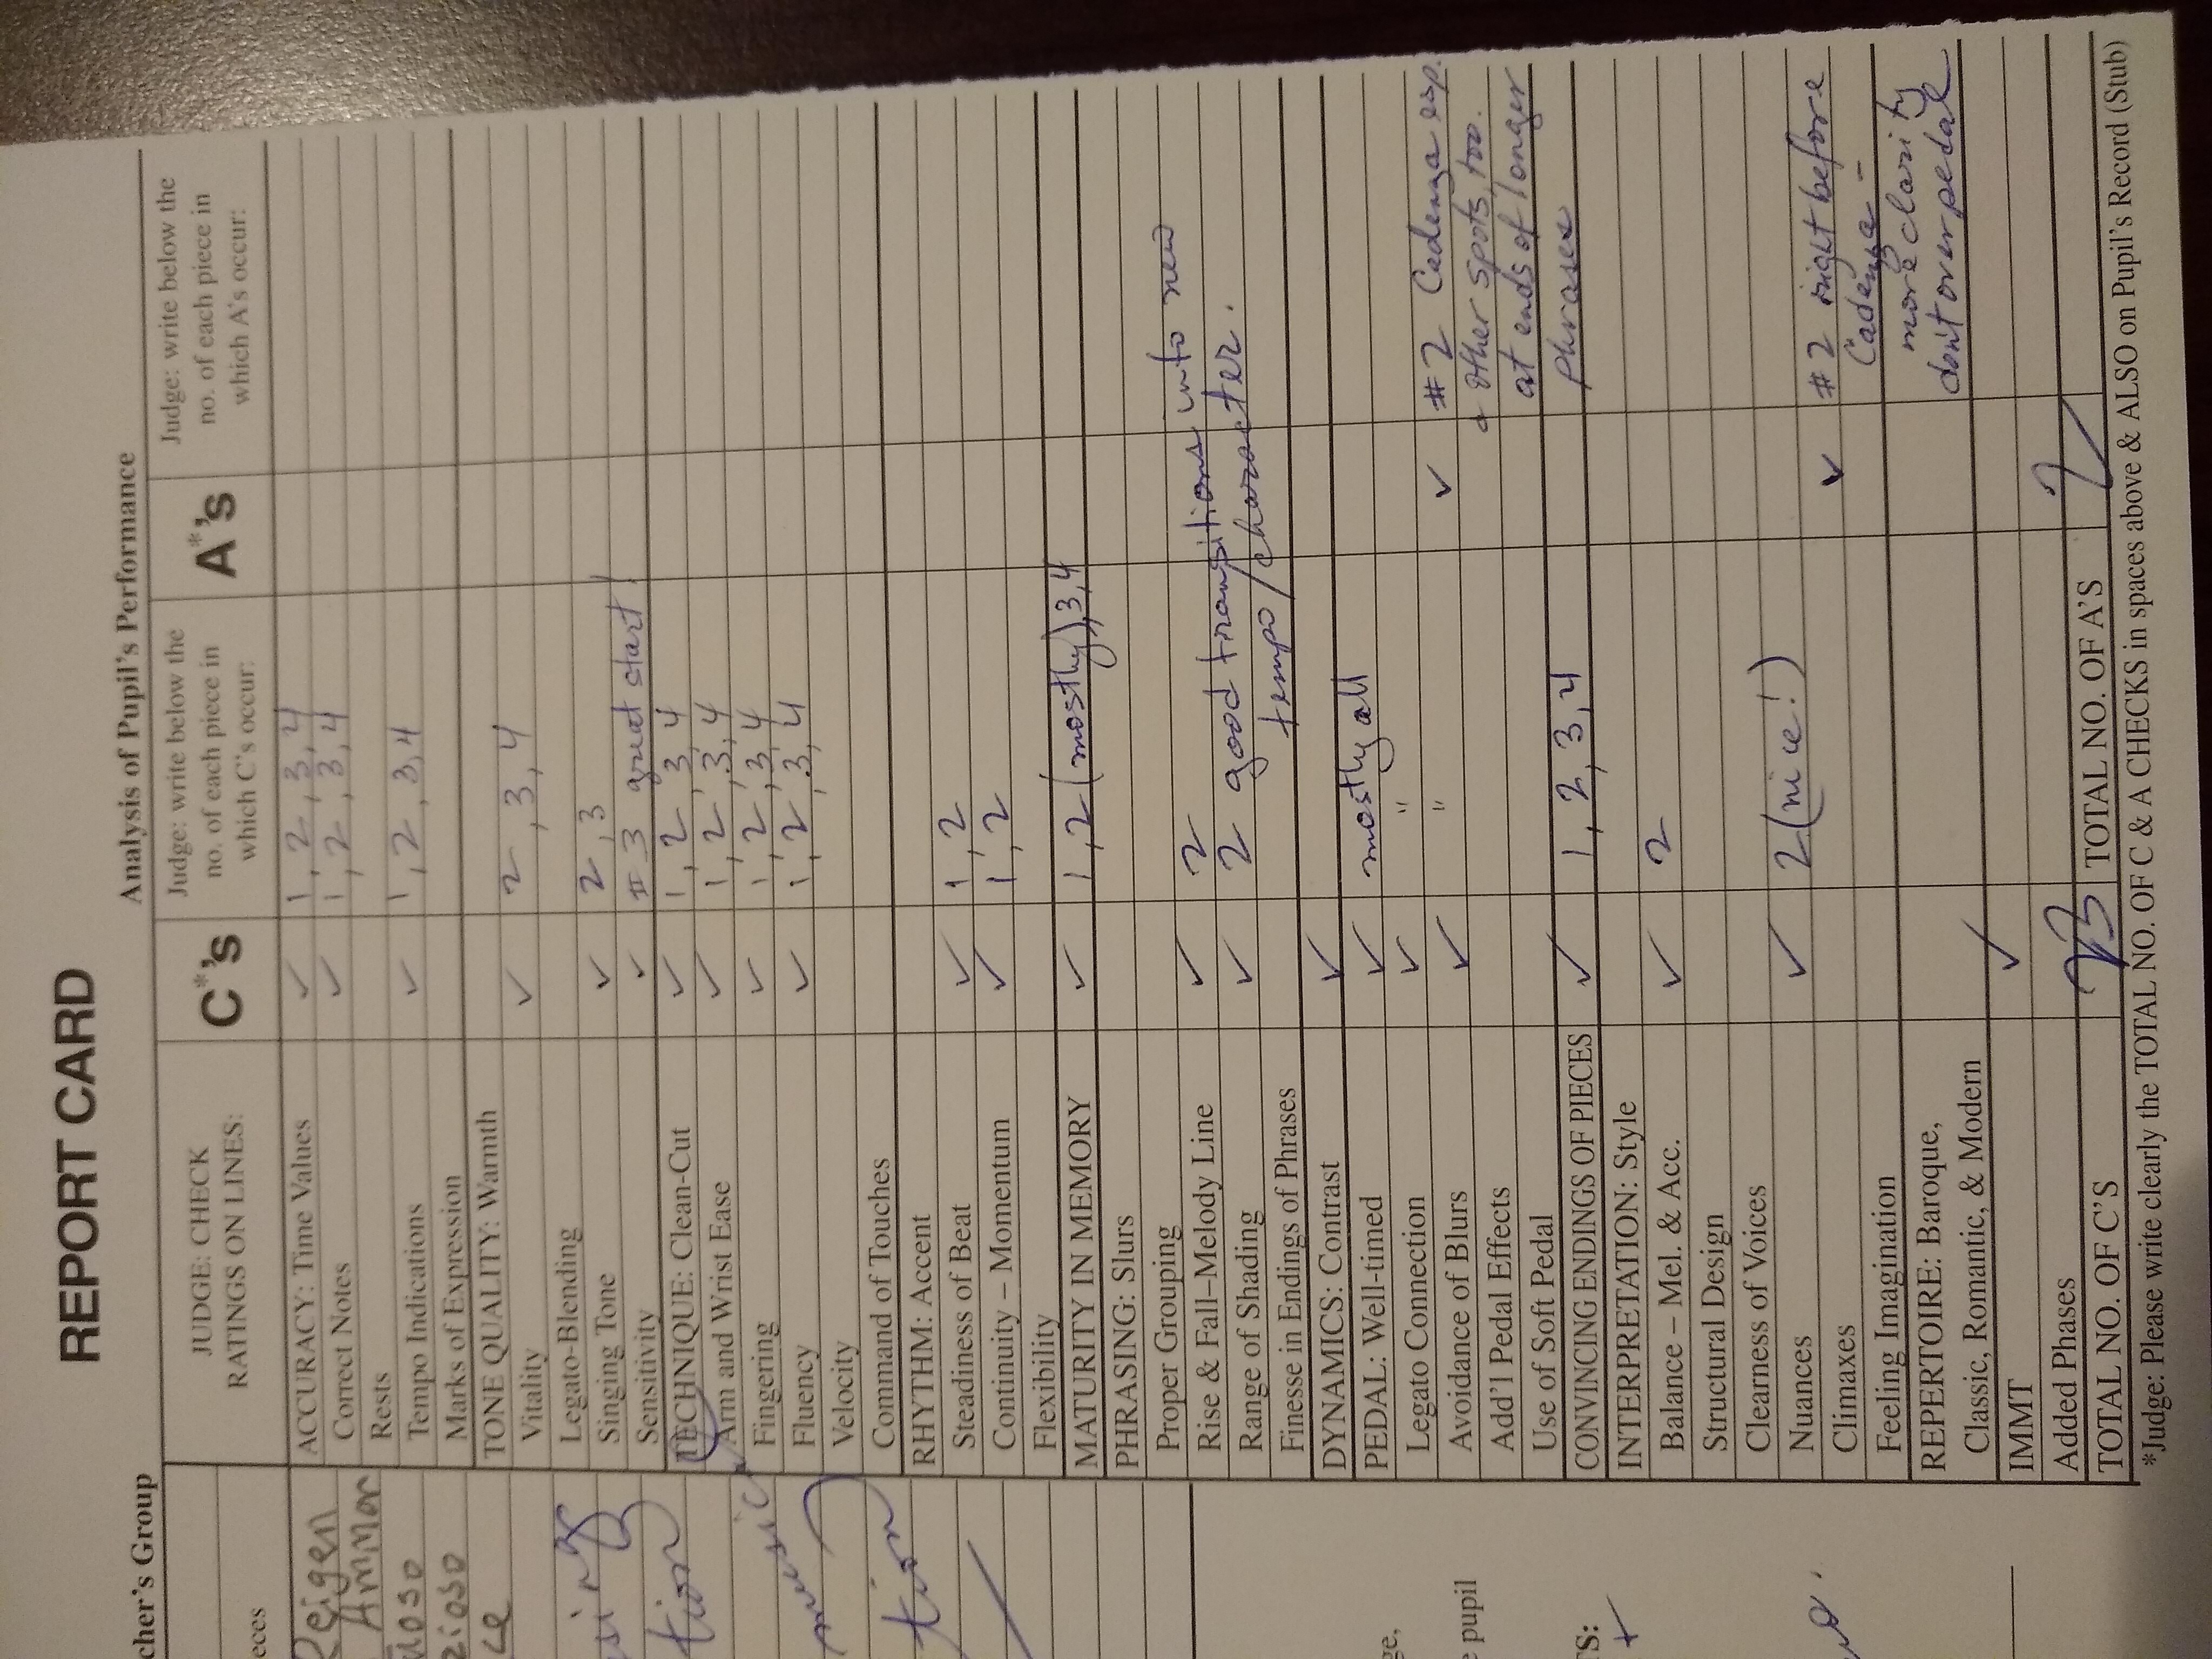 REPORT CARD
Analysis of Pupil's Performance
JUDGE: CHECK
RATINGS ON LINES:
C*'s
Judge: write below the
no. of each piece in
which C's occur:
A*'s
Judge: write below the
no. of each piece in
which A's occur:
ACCURACY: Time Values ✓ 1, 2, 3, 4
Correct Notes ✓ 1, 2, 3, 4
Rests
Tempo Indications ✓ 1, 2, 3, 4
Marks of Expression
TONE QUALITY: Warmth
Vitality ✓ 2, 3, 4
Legato-Blending
Singing Tone ✓ 2, 3
Sensitivity ✓ #3 great start!
TECHNIQUE: Clean-Cut ✓ 1, 2, 3, 4
Arm and Wrist Ease ✓ 1, 2, 3, 4
Fingering ✓ 1, 2, 3, 4
Fluency ✓ 1, 2, 3, 4
Velocity
Command of Touches
RHYTHM: Accent
Steadiness of Beat ✓ 1, 2
Continuity – Momentum ✓ 1, 2
Flexibility
MATURITY IN MEMORY ✓ 1, 2 (mostly), 3, 4
PHRASING: Slurs
Proper Grouping
Rise & Fall–Melody Line ✓ 2
Range of Shading ✓ 2 good transitions into new
Finesse in Endings of Phrases tempo/character.
DYNAMICS: Contrast ✓
PEDAL: Well-timed ✓ mostly all
Legato Connection ✓ "
Avoidance of Blurs ✓ " ✓ #2 Cadenza esp.
Add'l Pedal Effects other spots, too.
Use of Soft Pedal at ends of longer
CONVINCING ENDINGS OF PIECES ✓ 1, 2, 3, 4 phrases
INTERPRETATION: Style
Balance – Mel. & Acc. ✓ 2
Structural Design
Clearness of Voices
Nuances ✓ 2 (nice!)
Climaxes ✓ #2 right before
Feeling Imagination Cadenza –
REPERTOIRE: Baroque, more clarity
Classic, Romantic, & Modern don't overpedal
IMMT ✓
Added Phases
TOTAL NO. OF C'S 23 TOTAL NO. OF A'S 2
*Judge: Please write clearly the TOTAL NO. OF C & A CHECKS in spaces above & ALSO on Pupil's Record (Stub)
cher's Group
eces
Reigen
Ammor
pupil